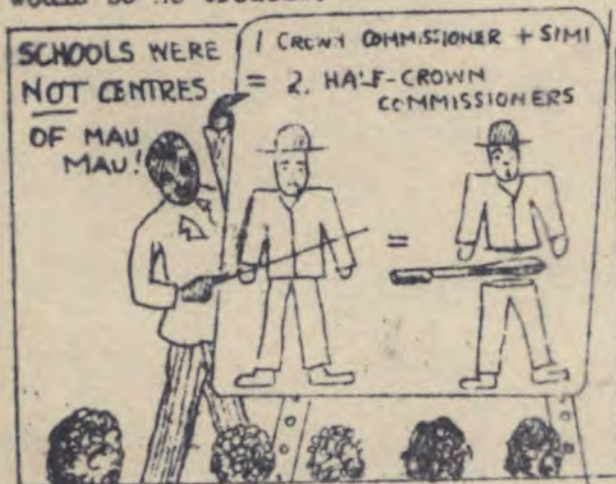 SCHOOLS WERE
NOT CENTRES
OF MAU
MAU!
1 CROWN COMMISSIONER + SIMI
= 2. HALF-CROWN
COMMISSIONERS
=